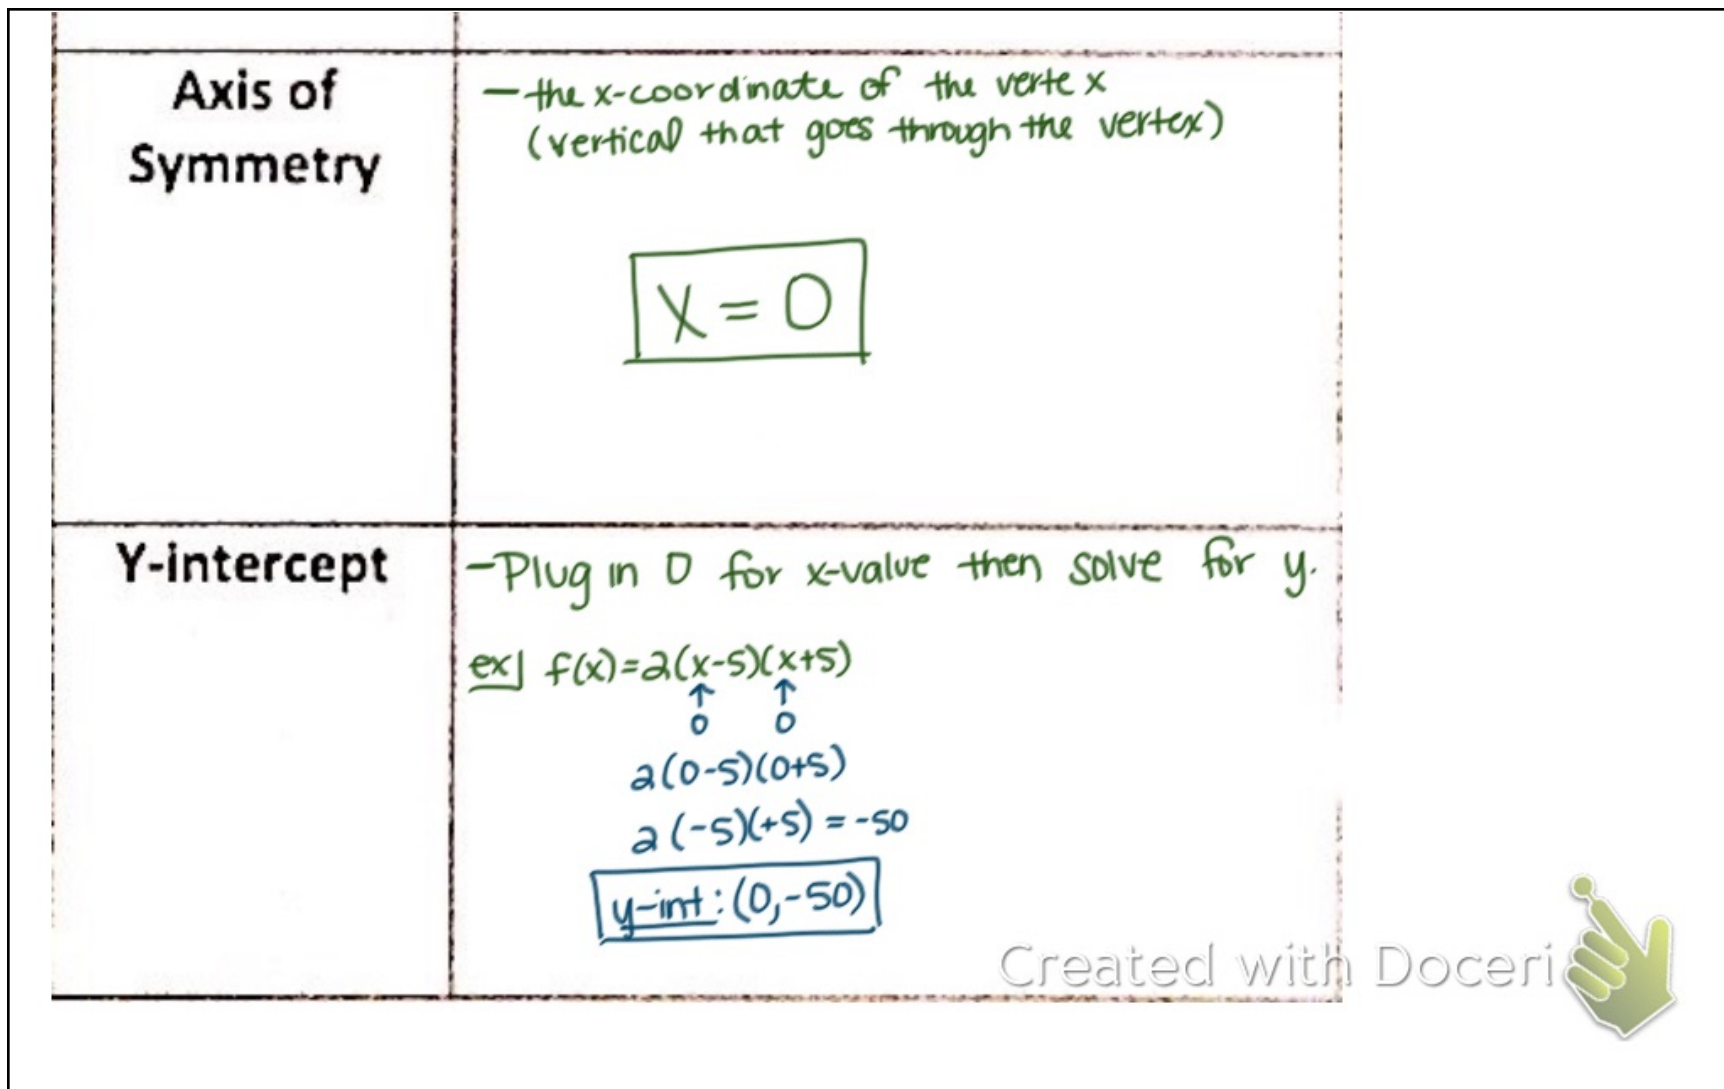 Axis of
Symmetry
- the x-coordinate of the vertex
(vertical that goes through the vertex)
x = 0
Y-intercept
- Plug in 0 for x-value then solve for y.
ex] f(x)=2(x-5)(x+5)
↑ ↑
0 0
2(0-5)(0+5)
2(-5)(+5) = -50
y-int: (0,-50)
Created with Doceri